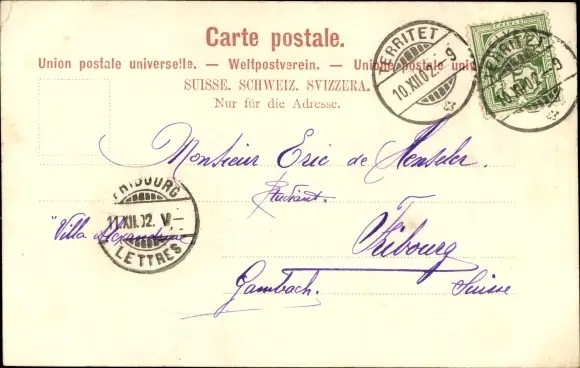 Carte postale.
Union postale universelle. — Weltpostverein. — Unione postale univ
SUISSE. SCHWEIZ. SVIZZERA.
Nur für die Adresse.
TERRITET
10.XII.02. 9
TERRITET
10.XII.02. 9
Monsieur Eric de
Etudiant.
FRIBOURG
11.XII.02. V—
LETTRES
"Villa Alexandrine
Fribourg
Gambach. Suisse